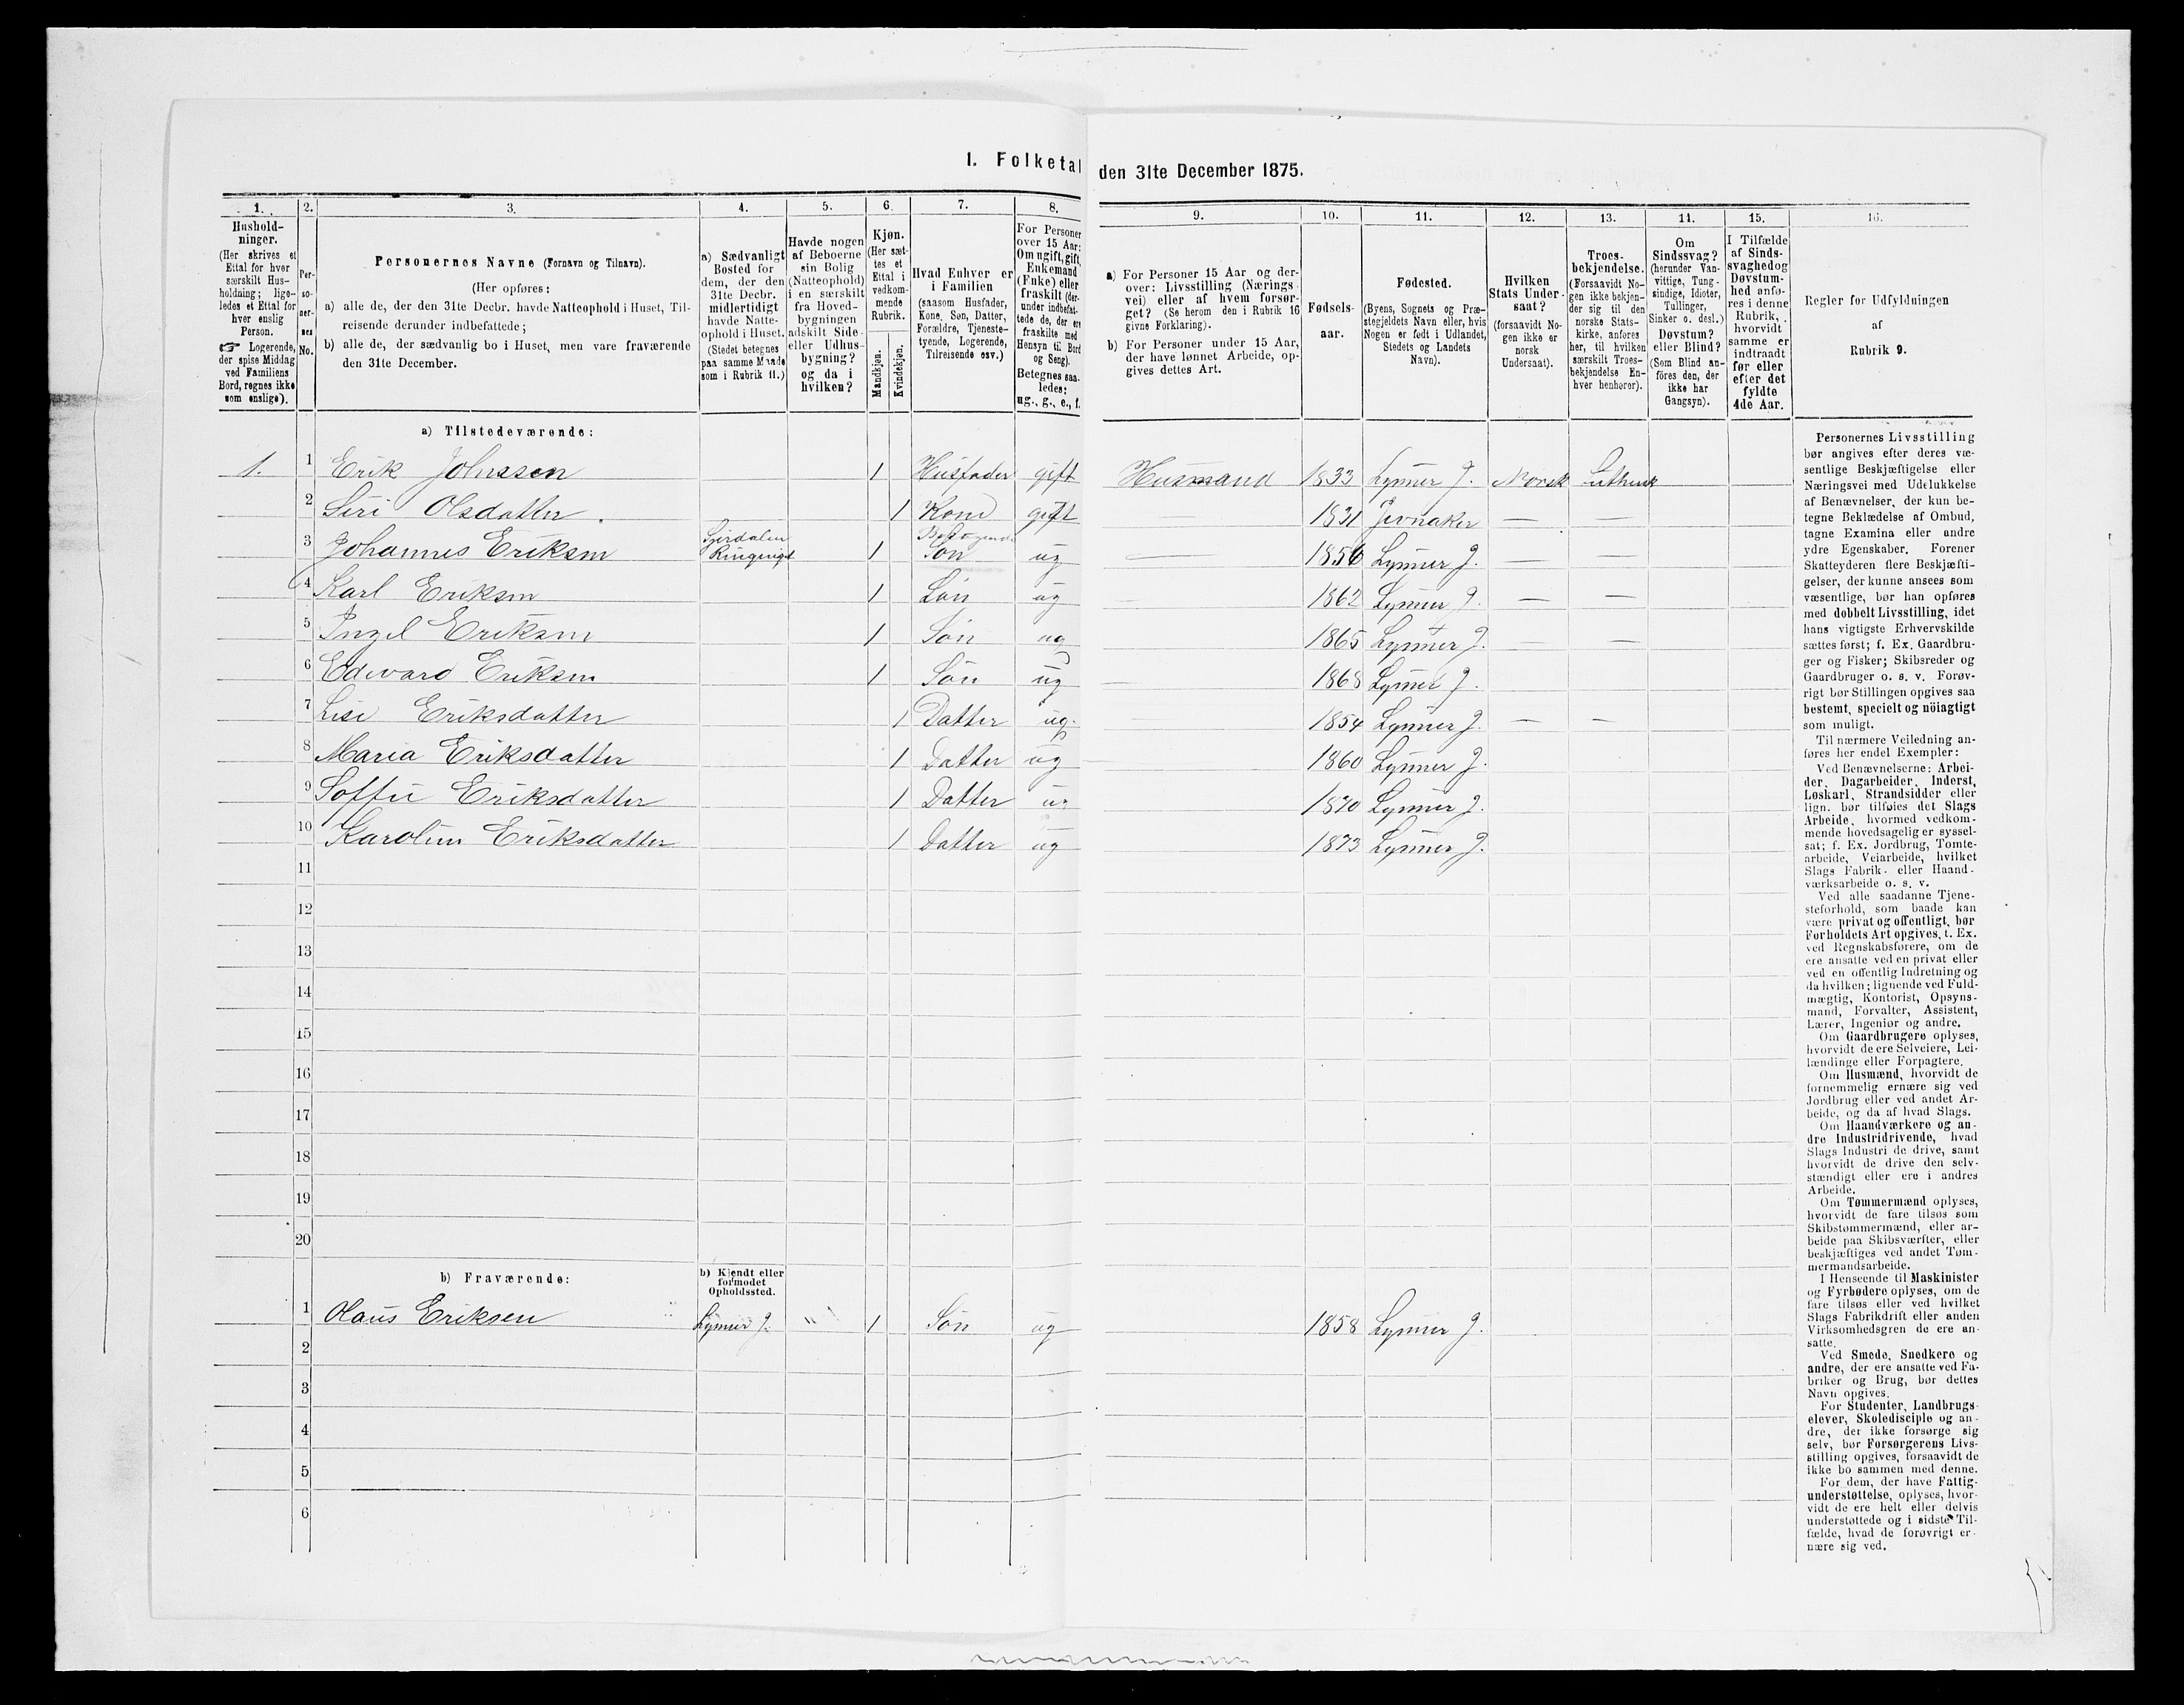 I. Folketal den 31te December 1875.
1. 2. 3. 4. 5. 6. 7. 8. 9. 10. 11. 12. 13. 14. 15. 16.
Hushold-
ninger.
(Her skrives et
Ettal for hver
særskilt Hus-
holdning; lige-
ledes et Ettal for
hver enslig
Person.
☞ Logerende,
der spise Middag
ved Familiens
Bord, regnes ikke
som enslige).
Per-
so-
ner-
nes
No.
Personernes Navne (Fornavn og Tilnavn).
(Her opføres:
a) alle de, der den 31te Decbr. havde Natteophold i Huset, Til-
reisende derunder indbefattede;
b) alle de, der sædvanlig bo i Huset, men vare fraværende
den 31te December.
a) Sædvanligt
Bosted for
dem, der den
31te Decbr.
midlertidigt
havde Natte-
ophold i Huset.
(Stedet betegnes
paa samme Maade
som i Rubrik 11.)
Havde nogen
af Beboerne
sin Bolig
(Natteophold)
i en særskilt
fra Hoved-
bygningen
adskilt Side-
eller Udhus-
bygning?
og da i
hvilken?
Kjøn.
(Her sæt-
tes et
Ettal i
vedkom-
mende
Rubrik.
Mandkjøn.
Kvindekjøn.
Hvad Enhver er
i Familien
(saasom Husfader,
Kone, Søn, Datter,
Forældre, Tjeneste-
tyende, Logerende,
Tilreisende osv.)
For Personer
over 15 Aar:
Om ugift, gift,
Enkemand
(Enke) eller
fraskilt (der-
under indbefat-
tede de, der ere
fraskilte med
Hensyn til Bord
og Seng).
Betegnes saa-
ledes:
ug., g., e., f.
a) For Personer 15 Aar og der-
over: Livsstilling (Nærings-
vei) eller af hvem forsør-
get? (Se herom den i Rubrik 16
givne Forklaring).
b) For Personer under 15 Aar,
der have lønnet Arbeide, op-
gives dettes Art.
Fødsels-
aar.
Fødested.
(Byens, Sognets og Præ-
stegjeldets Navn eller, hvis
Nogen er født i Udlandet,
Stedets og Landets
Navn).
Hvilken
Stats Under-
saat?
(forsaavidt No-
gen ikke er
norsk
Undersaat).
Troes-
bekjendelse.
(Forsaavidt No-
gen ikke bekjen-
der sig til den
norske Stats-
kirke, anføres
her, til hvilken
særskilt Troes-
bekjendelse En-
hver henhører).
Om
Sindssvag?
(herunder Van-
vittige, Tung-
sindige, Idioter,
Tullinger,
Sinker o. desl.)
Døvstum?
eller Blind?
(Som Blind an-
föres den, der
ikke har
Gangsyn).
I Tilfælde
af Sinds-
svaghed og
Døvstum-
hed anfø-
res i denne
Rubrik,
hvorvidt
samme er
indtraadt
før eller
efter det
fyldte
4de Aar.
Regler for Udfyldningen
af
Rubrik 9.
a) Tilstedeværende:
1. 1 Erik Johnssen 1 Husfader gift Husmand 1833 Lynner J. Norsk Luthersk
2 Siri Olsdatter 1 Kone gift 1831 Jevnaker — —
3 Johannes Eriksen Ringeriget 1 Søn ug 1856 Lynner J. — —
4 Karl Eriksen 1 Søn ug 1862 Lynner J. — —
5 Ingel Eriksen 1 Søn ug 1865 Lynner J. — —
6 Edward Eriksen 1 Søn ug 1868 Lynner J.
7 Lise Eriksdatter 1 Datter ug. 1854 Lynner J. — —
8 Maria Eriksdatter 1 Datter ug 1860 Lynner J.
9 Soffie Eriksdatter 1 Datter ug 1870 Lynner J.
10 Karoline Eriksdatter 1 Datter ug 1873 Lynner J.
11
12
13
14
15
16
17
18
19
20
b) Fraværende:
b) Kjendt eller
formodet
Opholdssted.
1 Olaus Eriksen Lynner J. " 1 Søn ug 1858 Lynner J.
2
3
4
5
6
Personernes Livsstilling
bør angives efter deres væ-
sentlige Beskjæftigelse eller
Næringsvei med Udelukkelse
af Benævnelser, der kun be-
tegne Beklædelse af Ombud,
tagne Examina eller andre
ydre Egenskaber. Forener
Skatteyderen flere Beskjæfti-
gelser, der kunne ansees som
væsentlige, bør han opføres
med dobbelt Livsstilling, idet
hans vigtigste Erhvervskilde
sættes først; f. Ex. Gaardbru-
ger og Fisker; Skibsreder og
Gaardbruger o. s. v. Forøv-
rigt bør Stillingen opgives saa
bestemt, specielt og nöiagtigt
som muligt.
Til nærmere Veiledning an-
føres her endel Exempler:
Ved Benævnelserne: Arbei-
der, Dagarbeider, Inderst,
Løskarl, Strandsidder eller
lign. bør tilføies det Slags
Arbeide, hvormed vedkom-
mende hovedsagelig er syssel-
sat; f. Ex. Jordbrug, Tomte-
arbeide, Veiarbeide, hvilket
Slags Fabrik- eller Haand-
værksarbeide o. s. v.
Ved alle saadanne Tjene-
steforhold, som baade kan
være privat og offentligt, bør
Forholdets Art opgives, t. Ex.
ved Regnskabsførere, om de
ere ansatte ved en privat eller
ved en offentlig Indretning og
da hvilken; lignende ved Fuld-
mægtig, Kontorist, Opsyns-
mand, Forvalter, Assistent,
Lærer, Ingeniør og andre.
Om Gaardbrugere oplyses,
hvorvidt de ere Selveiere, Lei-
lændinge eller Forpagtere.
Om Husmænd, hvorvidt de
fornemmelig ernære sig ved
Jordbrug eller ved andet Ar-
beide, og da af hvad Slags.
Om Haandværkere og an-
dre Industridrivende, hvad
Slags Industri de drive, samt
hvorvidt de drive den selv-
stændigt eller ere i andres
Arbeide.
Om Tømmermænd oplyses,
hvorvidt de fare tilsøs som
Skibstømmermænd, eller ar-
beide paa Skibsværfter, eller
beskjæftiges ved andet Tøm-
mermandsarbeide.
I Henseende til Maskinister
og Fyrbødere oplyses, om de
fare tilsøs eller ved hvilket
Slags Fabrikdrift eller anden
Virksomhedsgren de ere an-
satte.
Ved Smede, Snedkere og
andre, der ere ansatte ved Fa-
briker og Brug, bør dettes
Navn opgives.
For Studenter, Landbrugs-
elever, Skoledisciple og an-
dre, der ikke forsørge sig
selv, bør Forsørgerens Livs-
stilling opgives, forsaavidt de
ikke bo sammen med denne.
For dem, der have Fattig-
understøttelse, oplyses, hvor-
vidt de ere helt eller delvis
understøttede og i sidste Til-
fælde, hvad de forøvrigt er-
nære sig ved.